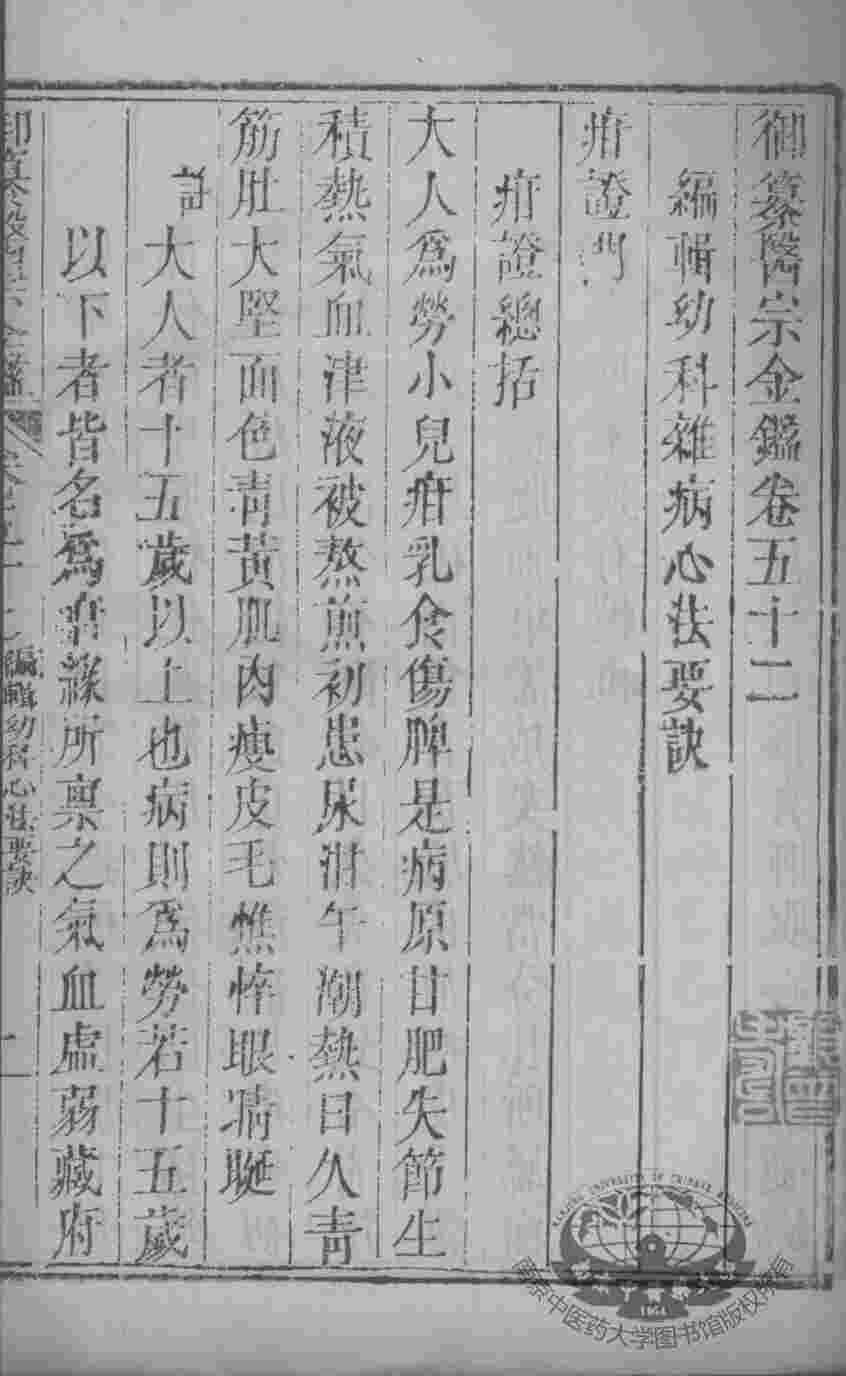 御纂醫宗金鑑卷五十二
編輯幼科雜病心法要訣
疳證門
疳證總括
大人爲勞小兒疳乳食傷脾是病原甘肥失節生
積熱氣血津液被熬煎初患尿泔午潮熱日久青
筋肚大堅面色青黃肌肉瘦皮毛憔悴眼睛䀹
註大人者十五歲以上也病則爲勞若十五歲
以下者皆名爲疳緣所稟之氣血虛弱藏府
編輯幼科心法要訣
南京中医药大学图书馆版权所有
NANJING UNIVERSITY OF CHINESE MEDICINE
1954